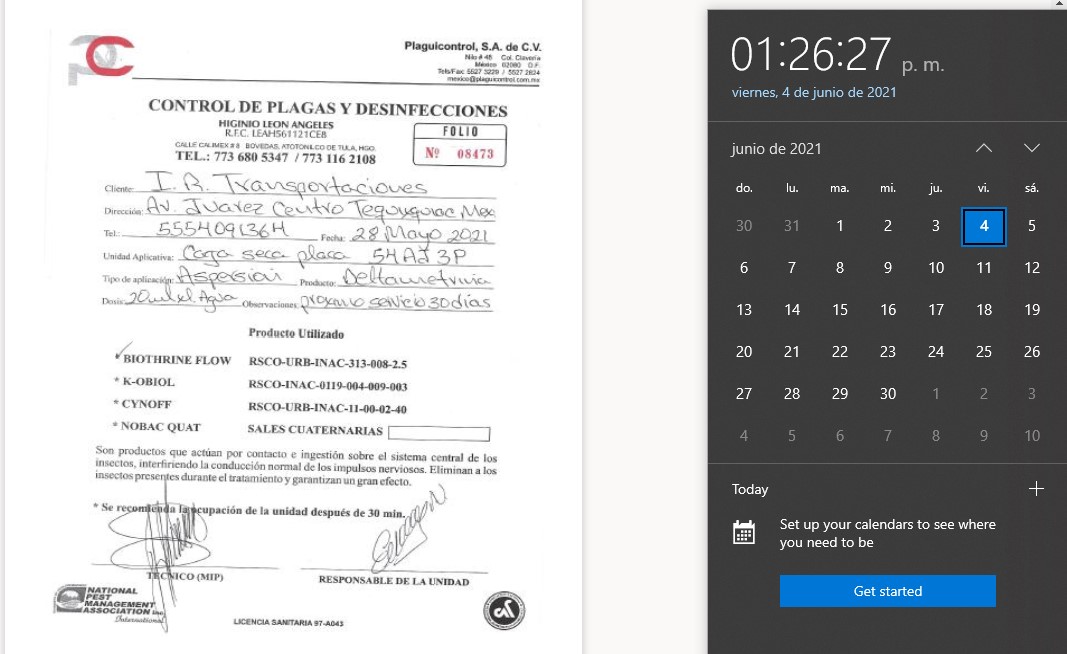 Plaguicontrol, S.A. de C.V.
Nilo # 48 Col. Clavería
México 02080 D.F.
Tels/Fax: 5527 3229 / 5527 2824
mexico@plaguicontrol.com.mx
CONTROL DE PLAGAS Y DESINFECCIONES
HIGINIO LEON ANGELES
R.F.C. LEAH561121CE8
CALLE CALIMEX # 8 BOVEDAS, ATOTONILCO DE TULA, HGO.
TEL.: 773 680 5347 / 773 116 2108
FOLIO
Nº 08473
Cliente: I. R. Transportaciones
Dirección: Av. Juarez Centro Tequixquiac Mex
Tel.: 5554091364 Fecha: 28 Mayo 2021
Unidad Aplicativa: Caja seca placa 54AJ3P
Tipo de aplicación: Aspersión Producto: Deltametrina
Dosis: 20ml xl. Agua Observaciones: proximo servicio 30 dias
Producto Utilizado
* BIOTHRINE FLOW RSCO-URB-INAC-313-008-2.5
* K-OBIOL RSCO-INAC-0119-004-009-003
* CYNOFF RSCO-URB-INAC-11-00-02-40
* NOBAC QUAT SALES CUATERNARIAS
Son productos que actúan por contacto e ingestión sobre el sistema central de los
insectos, interfiriendo la conducción normal de los impulsos nerviosos. Eliminan a los
insectos presentes durante el tratamiento y garantizan un gran efecto.
* Se recomienda la ocupación de la unidad después de 30 min.
TÉCNICO (MIP) RESPONSABLE DE LA UNIDAD
NATIONAL
PEST
MANAGEMENT
ASSOCIATION Inc.
International
LICENCIA SANITARIA 97-A043
01:26:27 p. m.
viernes, 4 de junio de 2021
junio de 2021
do. lu. ma. mi. ju. vi. sá.
30 31 1 2 3 4 5
6 7 8 9 10 11 12
13 14 15 16 17 18 19
20 21 22 23 24 25 26
27 28 29 30 1 2 3
4 5 6 7 8 9 10
Today
Set up your calendars to see where
you need to be
Get started